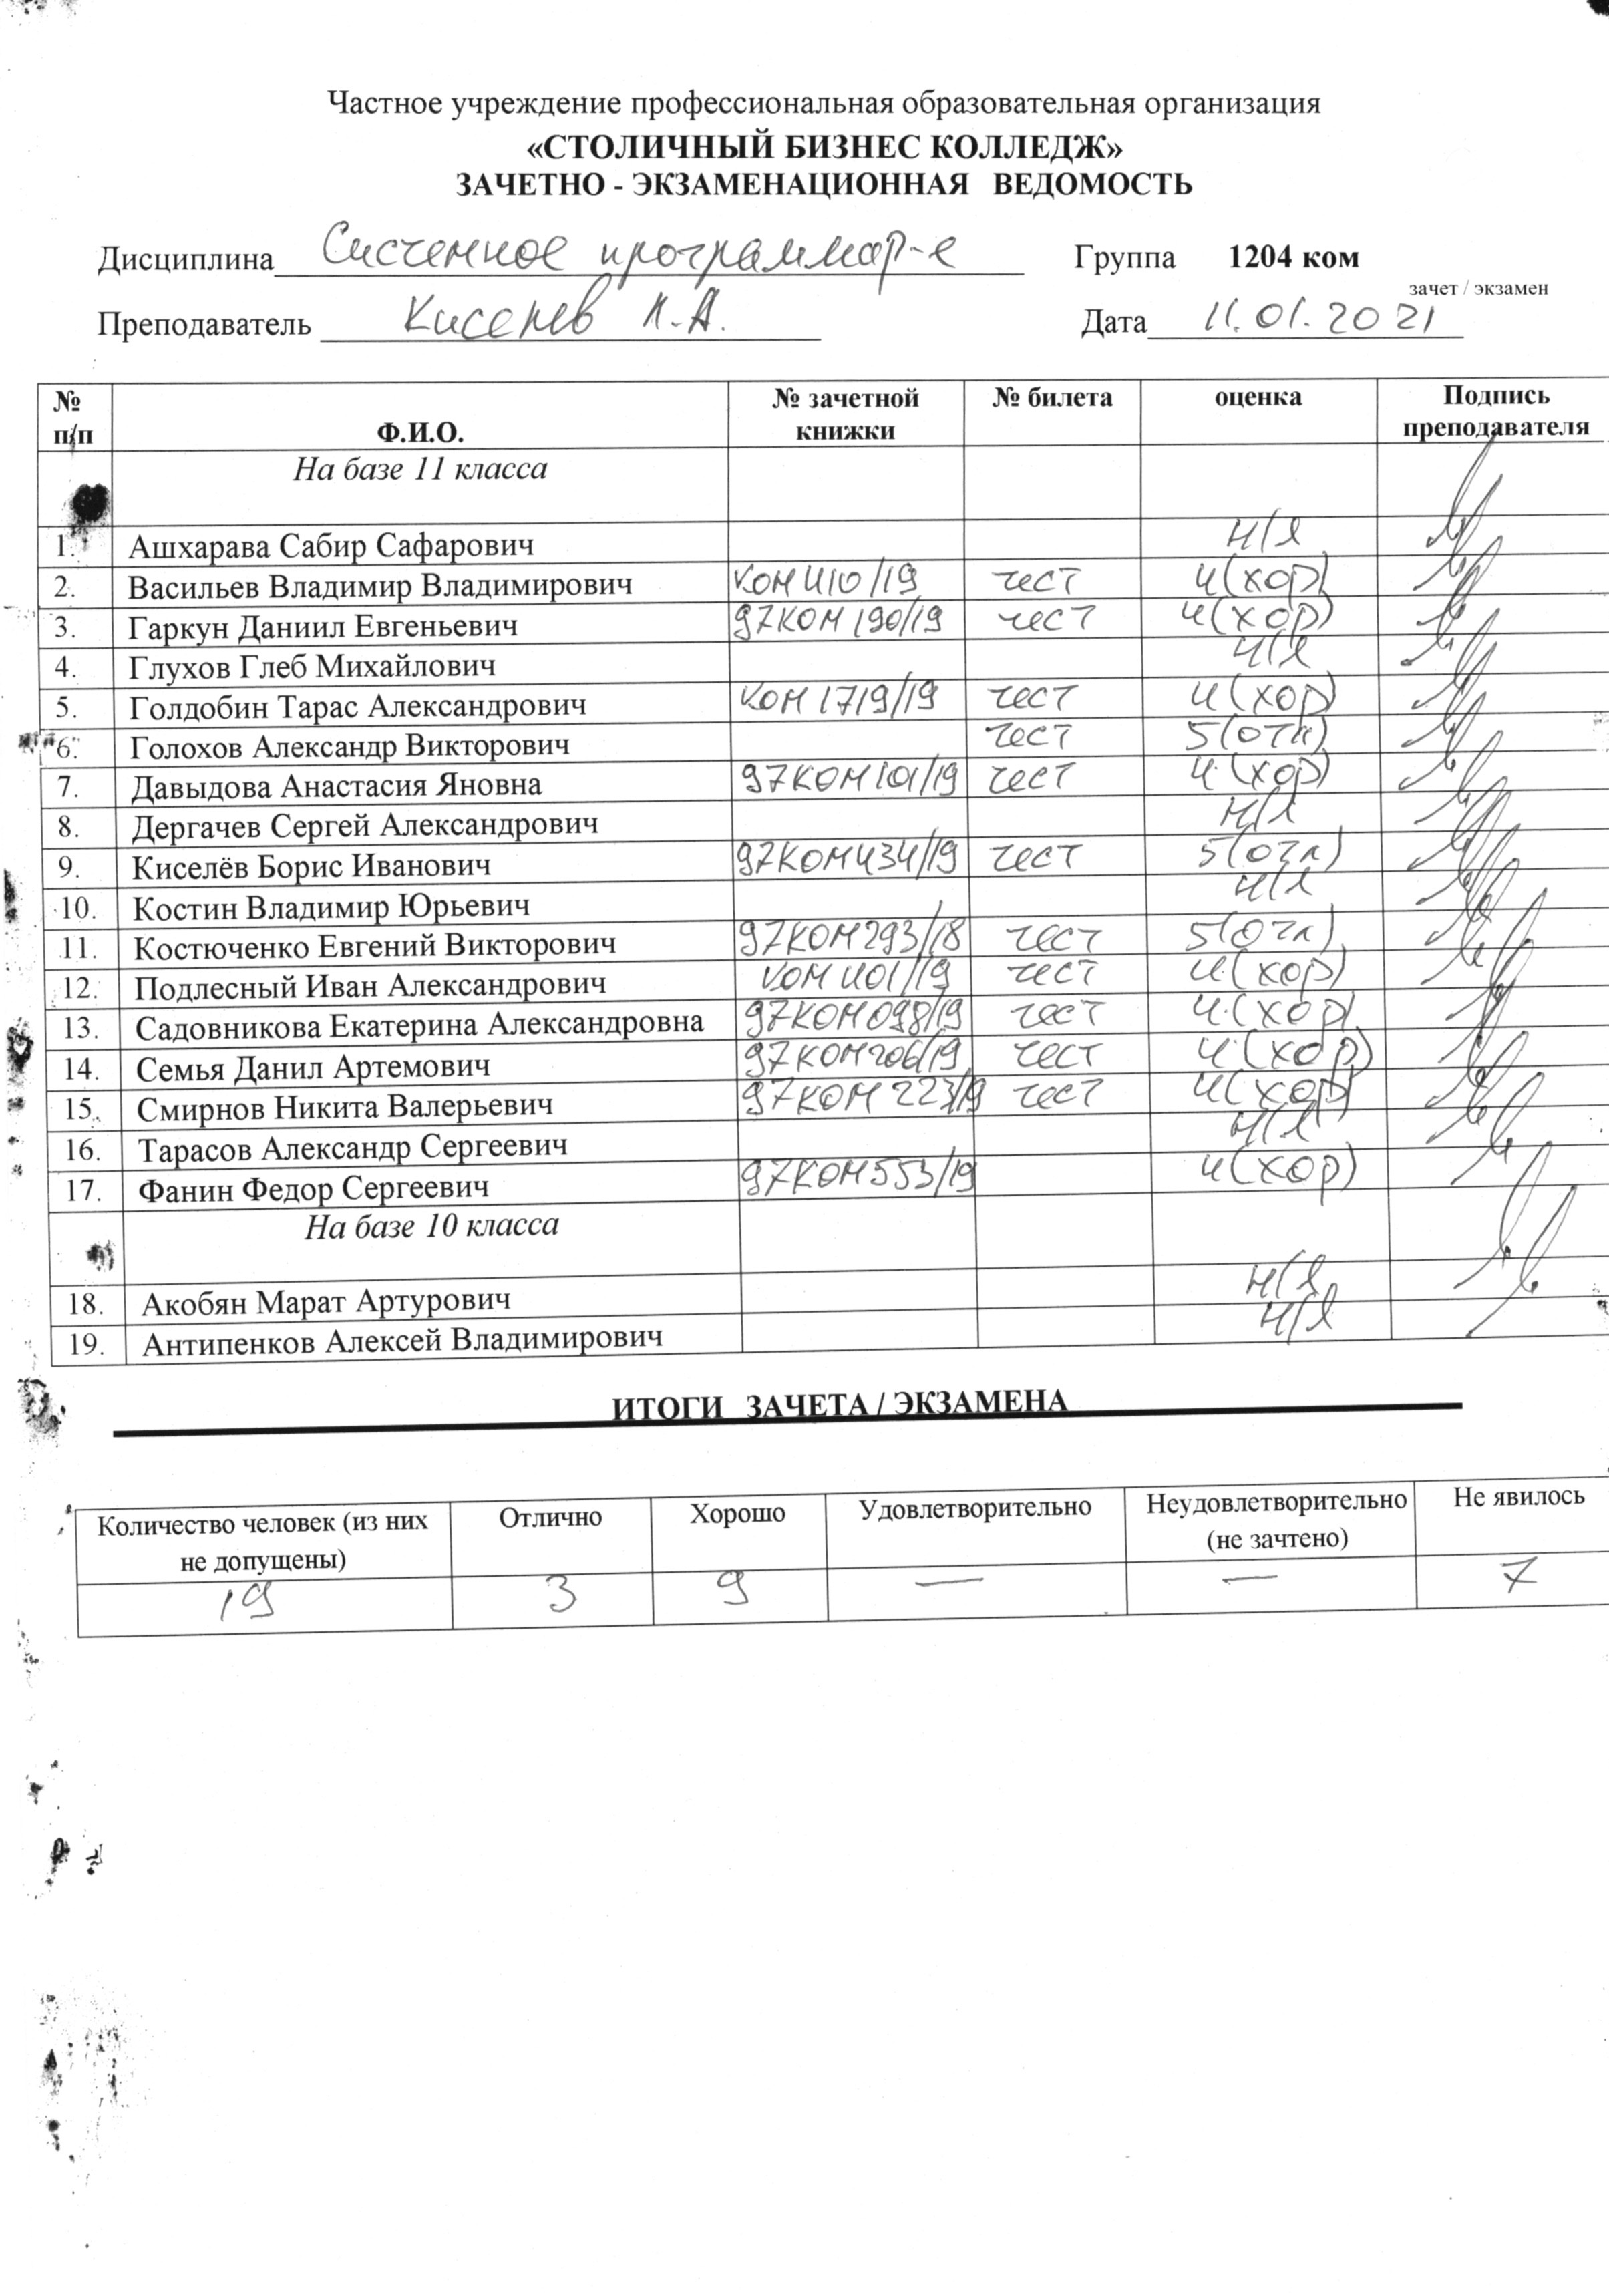 Частное учреждение профессиональная образовательная организация
«СТОЛИЧНЫЙ БИЗНЕС КОЛЛЕДЖ»
ЗАЧЕТНО - ЭКЗАМЕНАЦИОННАЯ ВЕДОМОСТЬ
Дисциплина Системное программир-е Группа 1204 ком
зачет / экзамен
Преподаватель Киселев К.А. Дата 11.01.2021
№ п/п Ф.И.О. № зачетной книжки № билета оценка Подпись преподавателя
На базе 11 класса
1. Ашхарава Сабир Сафарович н/я
2. Васильев Владимир Владимирович КОМ 410/19 тест 4(хор)
3. Гаркун Даниил Евгеньевич 97КОМ 190/19 тест 4(хор)
4. Глухов Глеб Михайлович н/я
5. Голдобин Тарас Александрович КОМ 1719/19 тест 4(хор)
6. Голохов Александр Викторович тест 5(отл)
7. Давыдова Анастасия Яновна 97КОМ101/19 тест 4(хор)
8. Дергачев Сергей Александрович н/я
9. Киселёв Борис Иванович 97КОМ434/19 тест 5(отл)
10. Костин Владимир Юрьевич н/я
11. Костюченко Евгений Викторович 97КОМ293/18 тест 5(отл)
12. Подлесный Иван Александрович КОМ 401/19 тест 4(хор)
13. Садовникова Екатерина Александровна 97КОМ098/19 тест 4(хор)
14. Семья Данил Артемович 97КОМ206/19 тест 4(хор)
15. Смирнов Никита Валерьевич 97КОМ 223/19 тест 4(хор)
16. Тарасов Александр Сергеевич н/я
17. Фанин Федор Сергеевич 97КОМ553/19 4(хор)
На базе 10 класса
18. Акобян Марат Артурович н/я
19. Антипенков Алексей Владимирович н/я
ИТОГИ ЗАЧЕТА / ЭКЗАМЕНА
Количество человек (из них не допущены) Отлично Хорошо Удовлетворительно Неудовлетворительно (не зачтено) Не явилось
19 3 9 — — 7